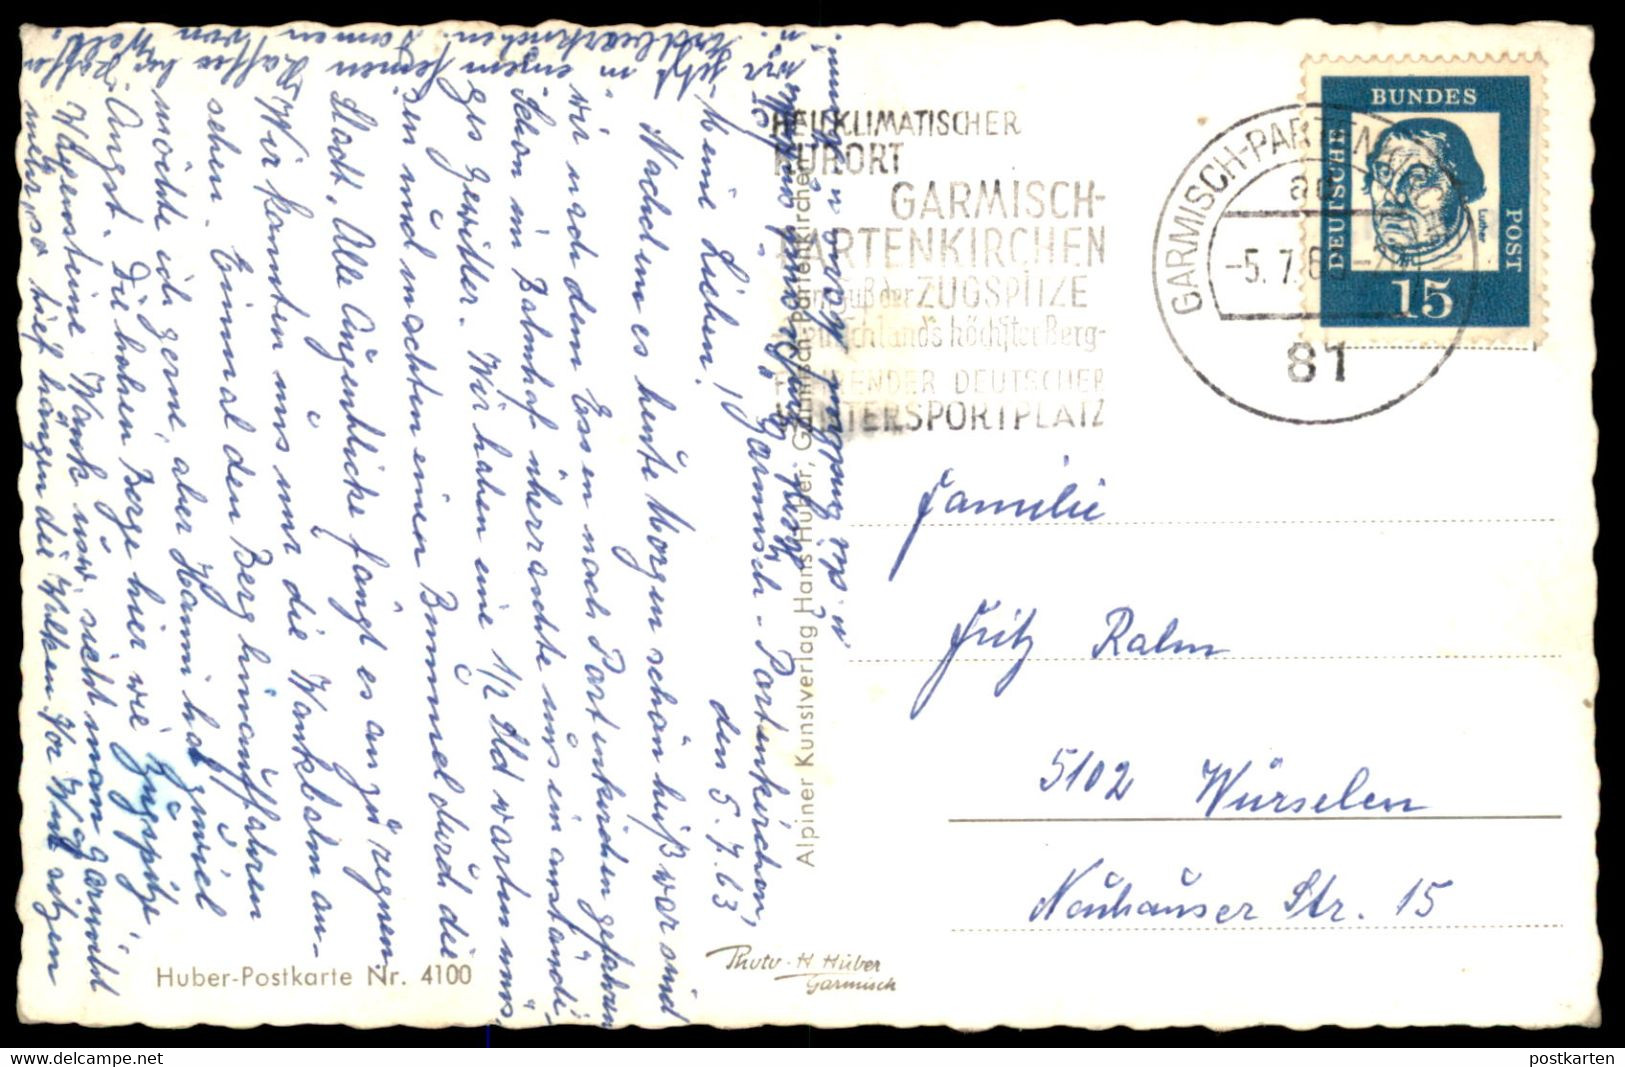 HEILKLIMATISCHER
KURORT
GARMISCH-
PARTENKIRCHEN
am Fuß der ZUGSPITZE
Deutschlands höchster Berg-
FÜHRENDER DEUTSCHER
WINTERSPORTPLATZ
GARMISCH-PARTENKIRCHEN
-5.7.6
81
DEUTSCHE
BUNDES
POST
Luther
15
Garmisch-Partenkirchen,
den 5.7.63
Meine Lieben!
Nachdem es heute Morgen schön heiß war sind
wir nach dem Essen nach Partenkirchen gefahren
Schon im Bahnhof überraschte uns ein anständi-
ges Gewitter. Wir haben eine 1/2 Std warten müs-
sen und machten einen Bummel durch die
Stadt. Alle Augenblicke fängt es an zu regnen.
Wir konnten uns nur die Wankbahn an-
sehen. Einmal den Berg hinauffahren
möchte ich gerne, aber Hanni hat zuviel
Angst. Die hohen Berge hier wie Zugspitze
Waxensteine Wank usw sieht man garnicht
mehr, so tief hängen die Wolken. Wir sitzen
jetzt in einem feinen Kaffee bei Kaffee
u. Erdbeerkuchen.
Alpiner Kunstverlag Hans Huber, Garmisch-Partenkirchen
Familie
Fritz Rahm
5102 Würselen
Neuhauser Str. 15
Huber-Postkarte Nr. 4100
Photo-H. Huber
Garmisch
www.delcampe.net
postkarten